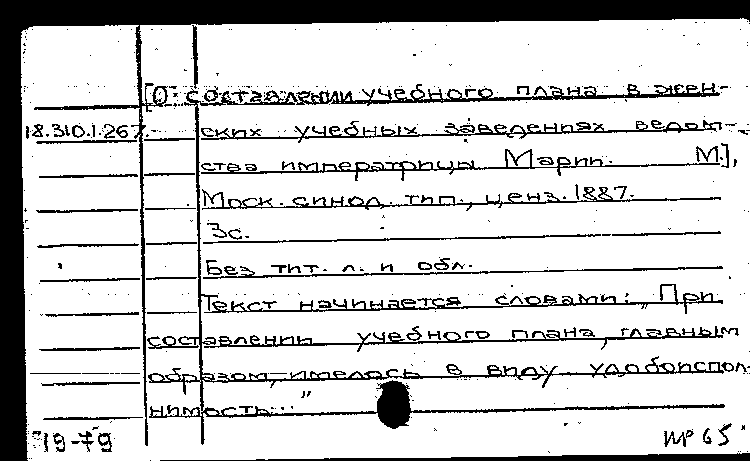 [О составлении учебного плана в жен-
18.310.1.267.- ских учебных заведениях ведом-
ства императрицы Марии. М.],
Моск. синод. тип., ценз. 1887.
3с.
Без тит. л. и обл.
Текст начинается словами: „При
составлении учебного плана, главным
образом, имелось в виду удобоиспол-
нимость..."
19-79